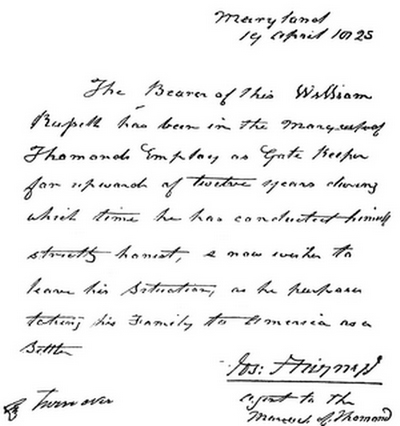 Maryland
19 April 1825
The Bearer of this William
Russell has been in the Marquess of
Thomonds Employ as Gate Keeper
for upwards of twelve years during
which time he has conducted himself
strictly honest, & now wishes to
leave his Situation, as he purposes
taking his Family to America as a
Settler
Jos:
Agent to the
Marquess of Thomond
Turn over